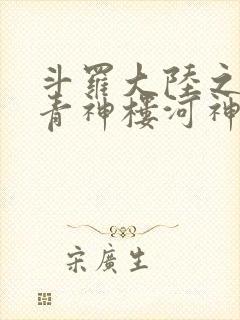 斗羅大陸之
青神樓河神
宋廣生